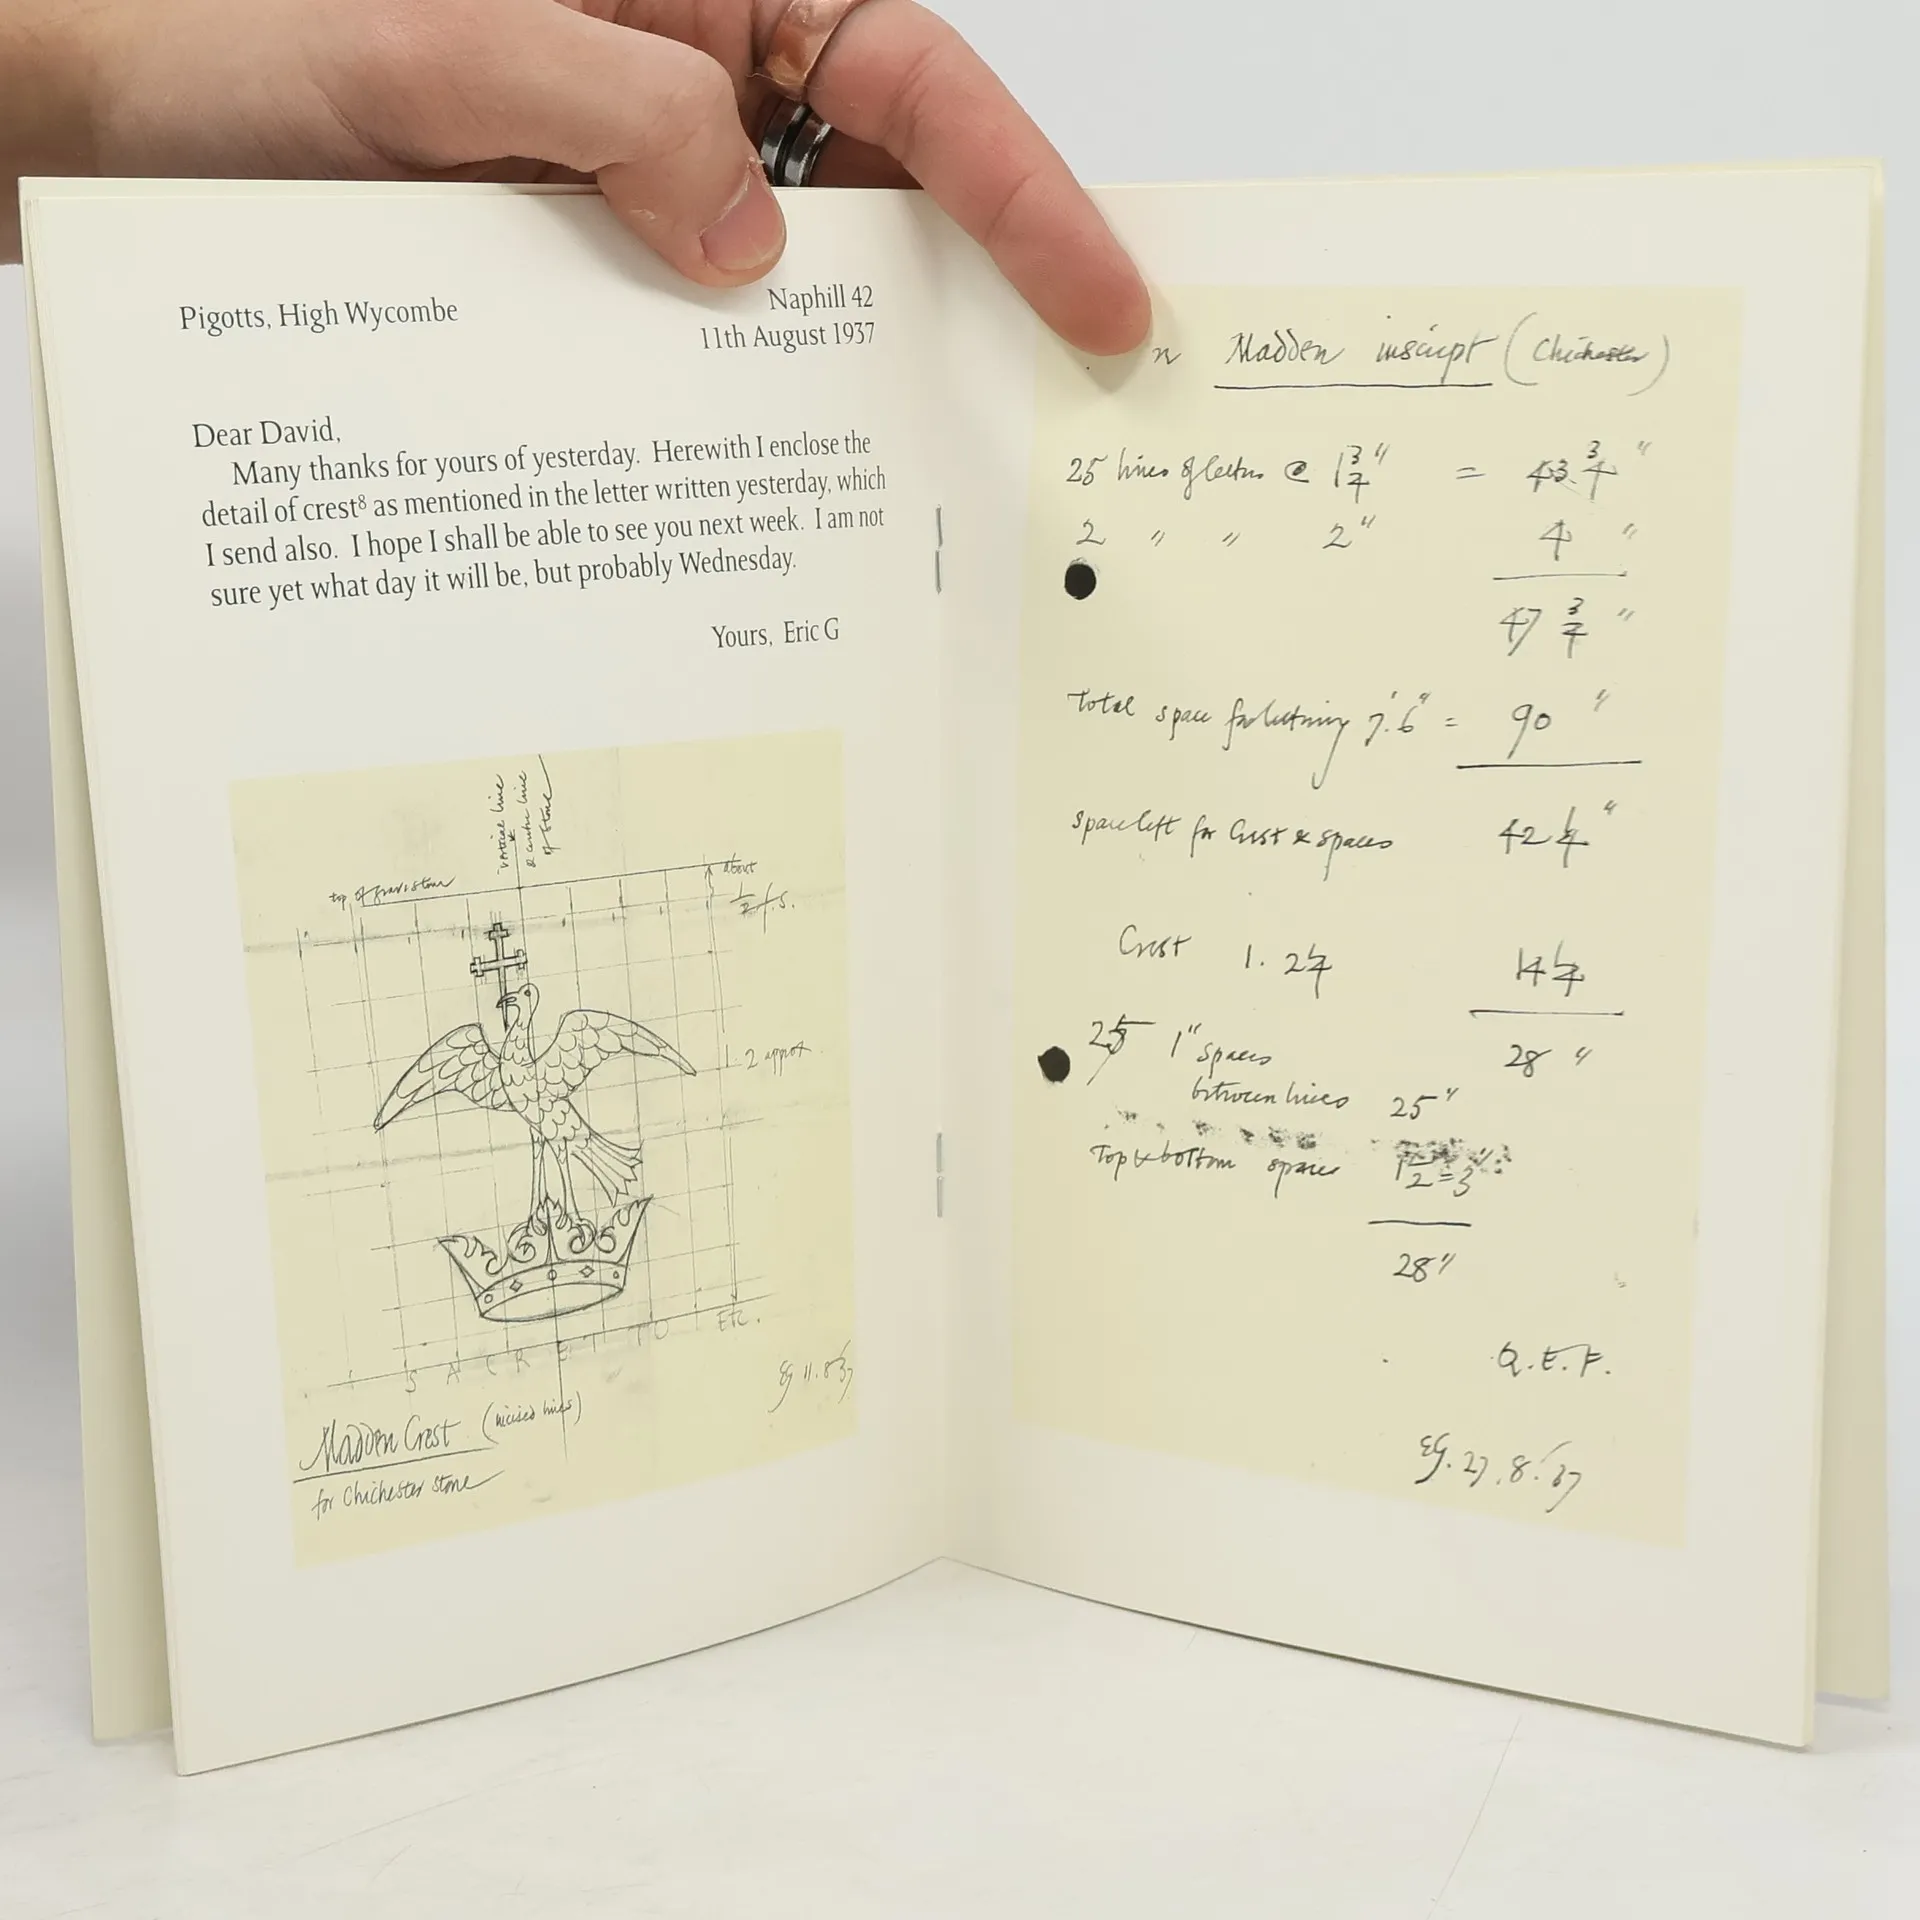 Pigotts, High Wycombe
Naphill 42
11th August 1937
Dear David,
Many thanks for yours of yesterday. Herewith I enclose the
detail of crest⁸ as mentioned in the letter written yesterday, which
I send also. I hope I shall be able to see you next week. I am not
sure yet what day it will be, but probably Wednesday.
Yours, Eric G
vertical line
& centre line
of stone
top of gravestone
about
1/2 f.s.
1. 2 approx
S A C R E T T O Etc.
EG 11.8.37
Madden Crest (incised lines)
for Chichester stone
n Madden inscript (Chichester)
25 lines of letters @ 1 3/4" = 43. 3/4"
2 " " 2" 4 "
47 3/4 "
Total space for lettering 7'. 6" = 90 "
Space left for Crest & spaces 42 1/4 "
Crest 1. 2 1/4 14 1/4
28 "
25 1" spaces
between lines 25"
Top & bottom spaces 1 1/2 = 3"
28"
Q.E.F.
EG. 27.8.'37